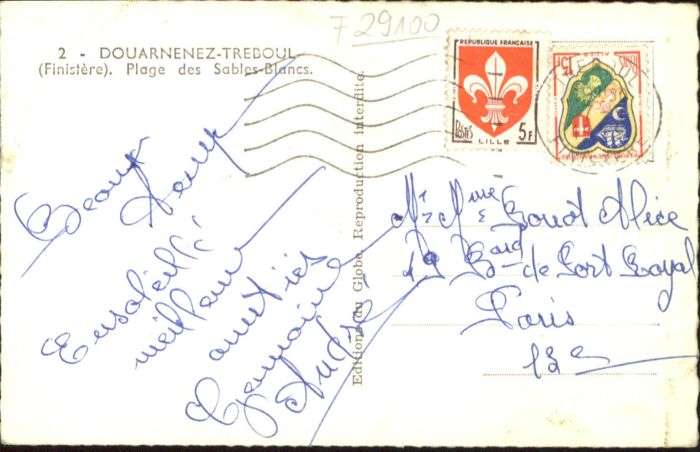 F 29100
2 - DOUARNENEZ-TREBOUL
(Finistère). Plage des Sables-Blancs.
REPUBLIQUE FRANÇAISE
Postes 5F
LILLE
15F
Editions du Globe. Reproduction interdite.
Beau temps
Ensoleillé
meilleures
amitiés
Germaine
André
Mr Mme Gouot Alice
49 Bard de Port Royal
Paris
13e